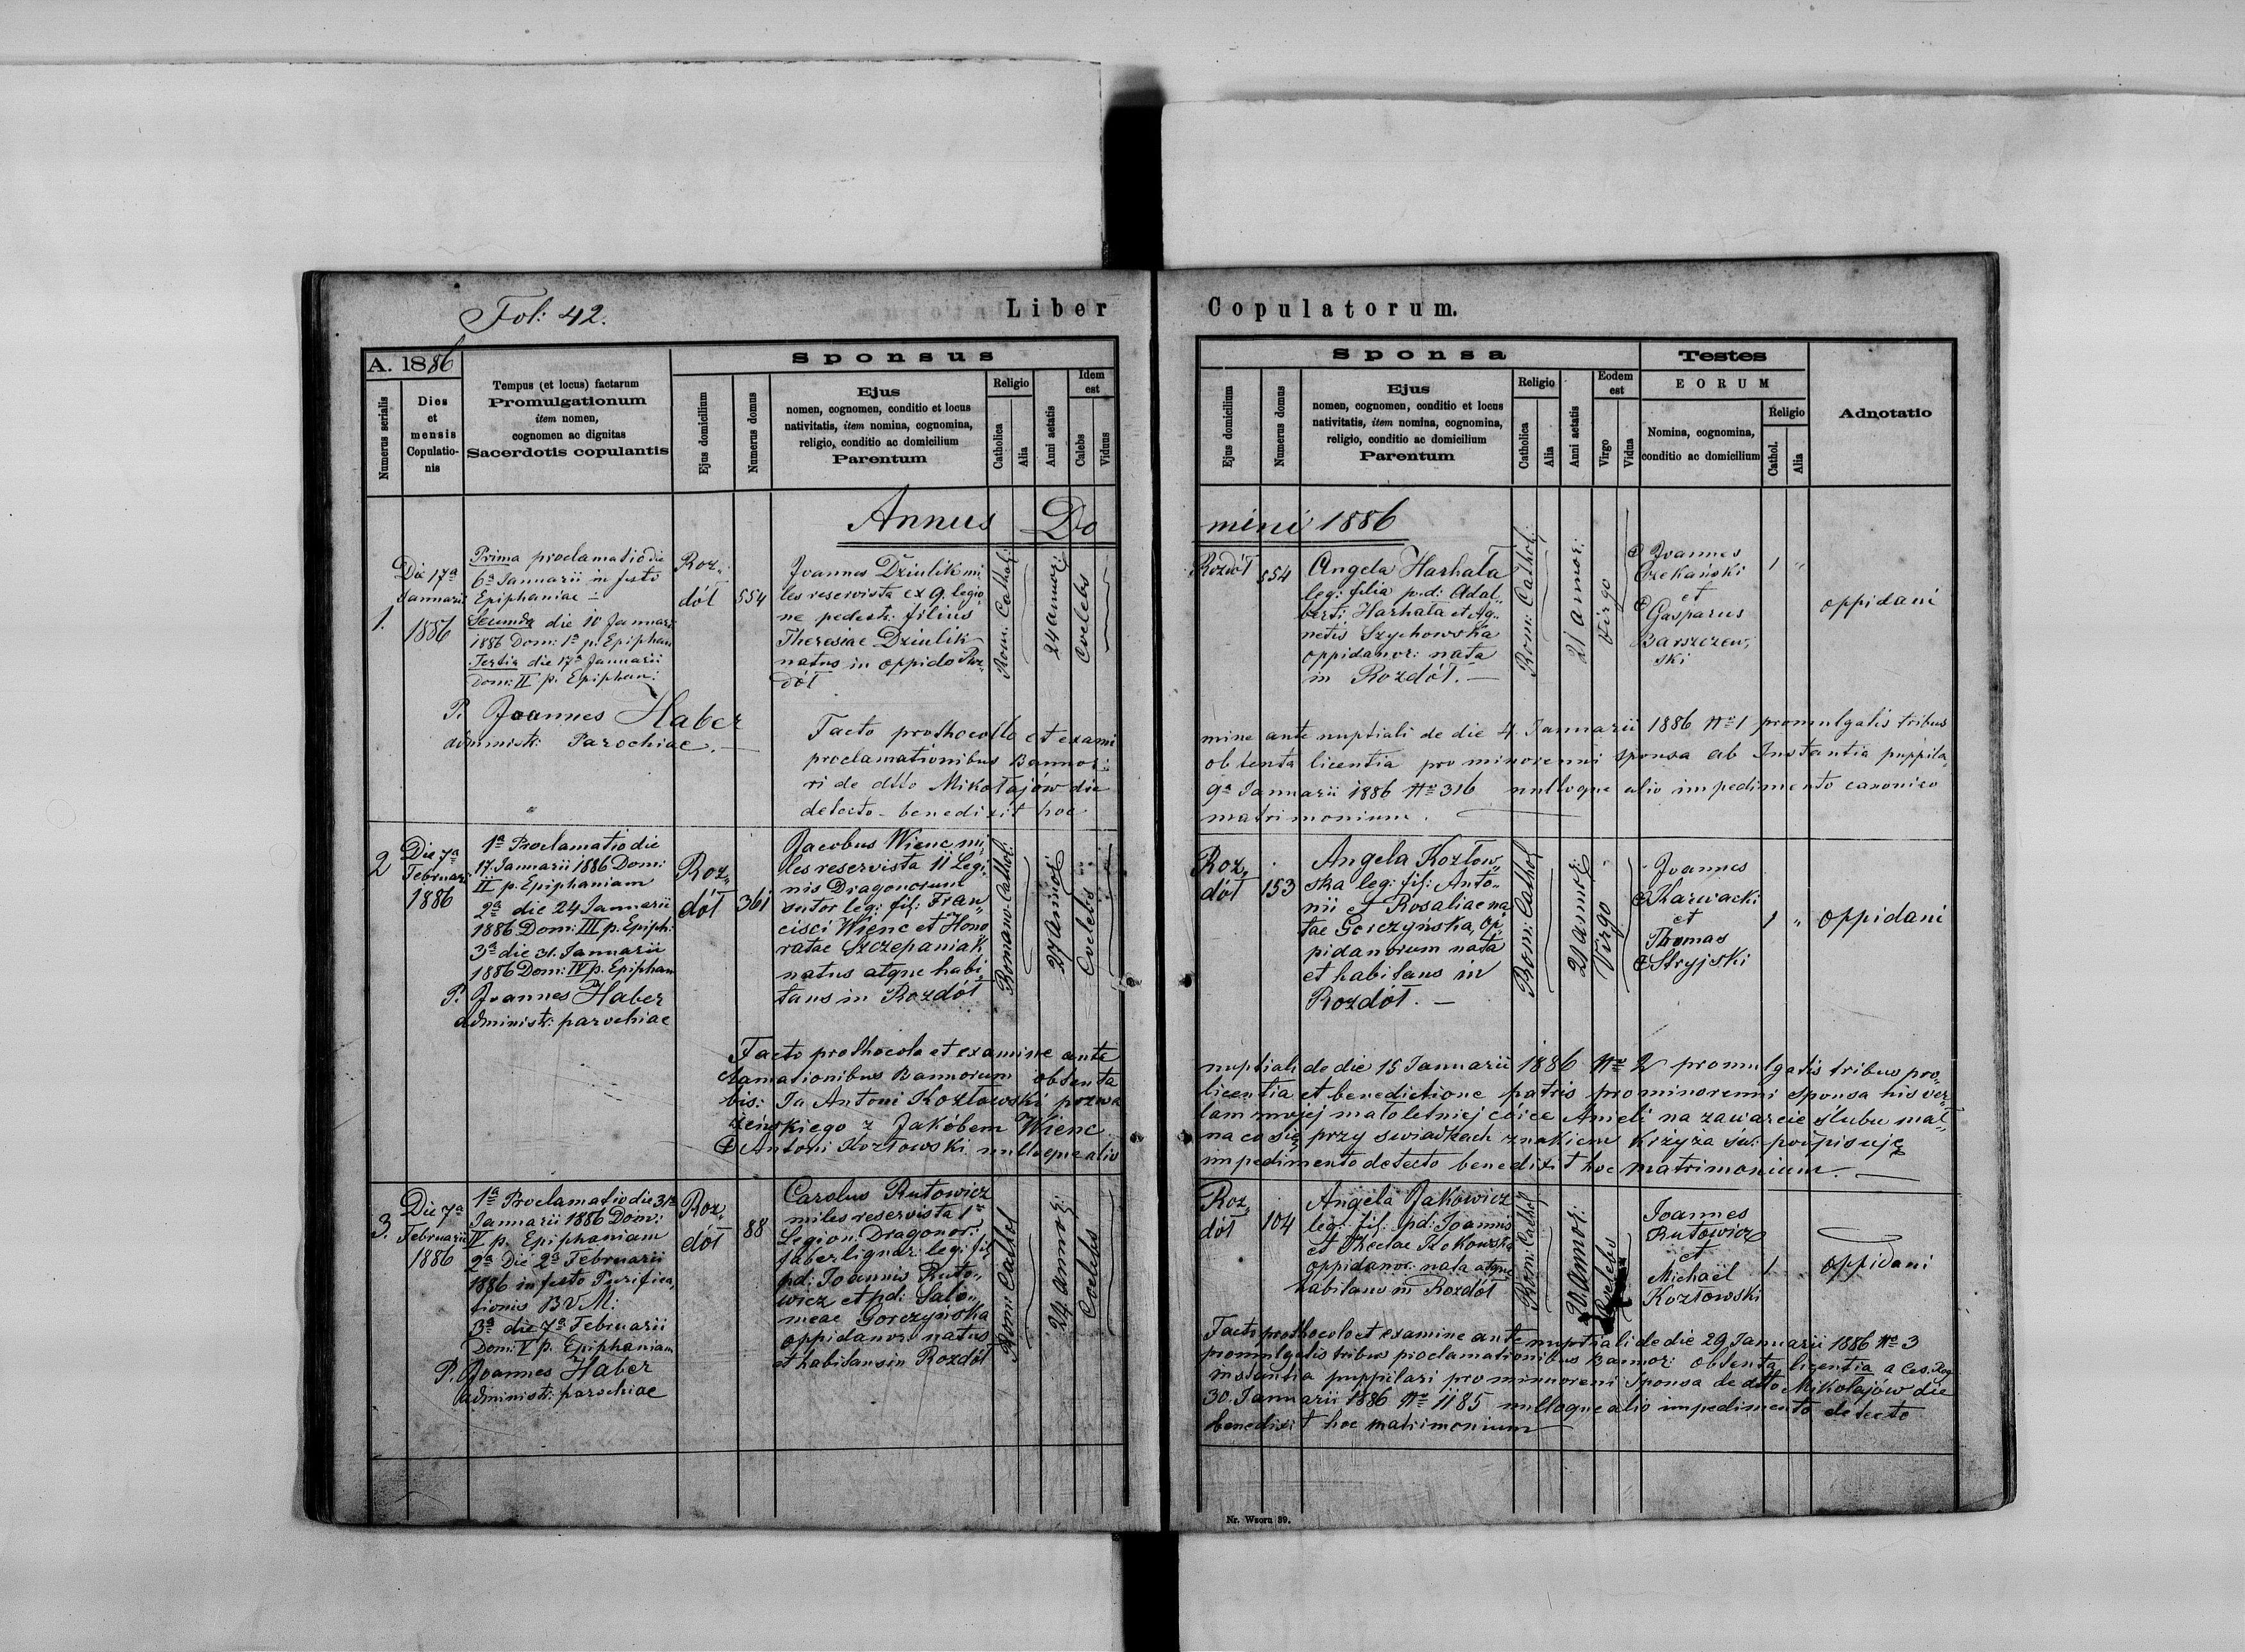 Fol: 42.
Liber Copulatorum.
A. 1886
Numerus serialis
Dies et mensis Copulatio-nis
Tempus (et locus) factarum
Promulgationum
item nomen,
cognomen ac dignitas
Sacerdotis copulantis
Sponsus
Ejus domicilium
Numerus domus
Ejus
nomen, cognomen, conditio et locus
nativitatis, item nomina, cognomina,
religio, conditio ac domicilium
Parentum
Religio
Catholica
Alia
Anni aetatis
Idem est
Calebs
Viduus
Sponsa
Ejus domicilium
Numerus domus
Ejus
nomen, cognomen, conditio et locus
nativitatis, item nomina, cognomina,
religio, conditio ac domicilium
Parentum
Religio
Catholica
Alia
Anni aetatis
Eodem est
Virgo
Vidua
Testes
EORUM
Nomina, cognomina,
conditio ac domicilium
Religio
Cathol.
Alia
Adnotatio
Annus Domini 1886
1.
Die 17a
Januarii
1886
Prima proclamatio die
6a Januarii in festo
Epiphaniae
Secunda die 10 Januarii
1886 Dom: 1a p. Epiphan
Tertia die 17a Januarii
Dom: II p. Epiphan:
P. Joannes Haber
administr: Parochiae.
Roz„
dół
554
Joannes Dziulik mi
les reservista ex 9. legio
ne pedestr: filius
Theresiae Dziulik
natus in oppido Roz„
dół
Rom: Cathol:
24 annor:
Coelebs
Rozdół
554
Angela Harhala
leg: filia p.d: Adal„
berti Harhala et Ag„
netis Szychowska
oppidanor: nata
in Rozdół.
Rom: Cathol:
21 annor:
Virgo
Joannes
Czekański
et
Gasparus
Barszczew„
ski
1
„
oppidani
Facto prothocollo et exami
mine ante nuptiali de die 4. Januarii 1886 No 1 promulgatis tribus
proclamationibus Bannor:
obtenta licentia pro minorenni sponsa ab Instantia puppila„
ri de dtto Mikołajów die
9a Januarii 1886 No 316 nulloque alio impedimento canonico
detecto benedixit hoc
matrimonium.
2
Die 7a
Februarii
1886
1a Proclamatio die
17 Januarii 1886 Dom:
II p. Epiphaniam
2a die 24 Januarii
1886 Dom: III p. Epiph:
3a die 31. Januarii
1886 Dom: IV p. Epiphan
P. Joannes Haber
administr: parochiae
Roz„
dół
361
Jacobus Wienc mi„
les reservista 11 Legi„
nis Dragonorum
sutor leg: fil: Fran„
cisci Wienc et Hono
ratae Szczepaniak
natus atque habi„
tans in Rozdół
Romano-Cathol:
27 annor:
Coelebs
Roz„
dół
153
Angela Kozłow„
ska leg: fil: Anto„
nii et Rosaliae na
tae Gorczyńska, op„
pidanorum nata
et habitans in
Rozdół.
Rom: Cathol
21 annor:
Virgo
Joannes
Karwacki
et
Thomas
Stryjski
1
„
oppidani
Facto prothocolo et examine ante
nuptiali de die 15 Januarii 1886 No 2 promulgatis tribus pro„
clamationibus Bannorum obtenta
licentia et benedictione patris pro minorenni sponsa his ver„
bis: Ja Antoni Kozłowski pozwa
lam mojej małoletniej córce Anieli na zawarcie ślubu mał„
żeńskiego z Jakóbem Wienc
na co się przy swiadkach znakiem Krzyża św: podpisuję
Antoni Kozłowski nulloque alio
impedimento detecto benedixit hoc matrimonium.
3.
Die 7a
Februarii
1886
1a Proclamatio die 31a
Januarii 1886 Dom:
IV p. Epiphaniam
2a Die 2a Februarii
1886 in festo Purifica„
tionis B V M:
3a die 7a Februarii
Dom: V p. Epiphaniam
P. Joannes Haber
administr: parochiae
Roz„
dół
88
Carolus Rutowicz
miles reservista 1ae
Legion: Dragonor:
faber lignar: leg: fil
pd: Joannis Ruto„
wicz et pd: Salo„
meae Gorczyńska
oppidanor: natus
et habitans in Rozdół
Rom: Cathol
24 annor:
Coelebs
Roz„
dół
104
Angela Jakowicz
leg: fil: pd: Joannis
et Theclae
oppidanor: nata atque
habitans in Rozdół
Rom: Cathol
20 annor:
Joannes
Rutowicz
et
Michaël
Kozłowski
1
oppidani
Facto prothocolo et examine ante nuptiali de die 29 Januarii 1886 No 3
promulgatis tribus proclamationibus Bannor: obtenta licentia a Ces. Reg
instantia puppilari pro minoreni Sponsa de dtto Mikołajów die
30. Januarii 1886 No 1185 nulloque alio impedimento detecto
benedixit hoc matrimonium
Nr. Wzoru 39.